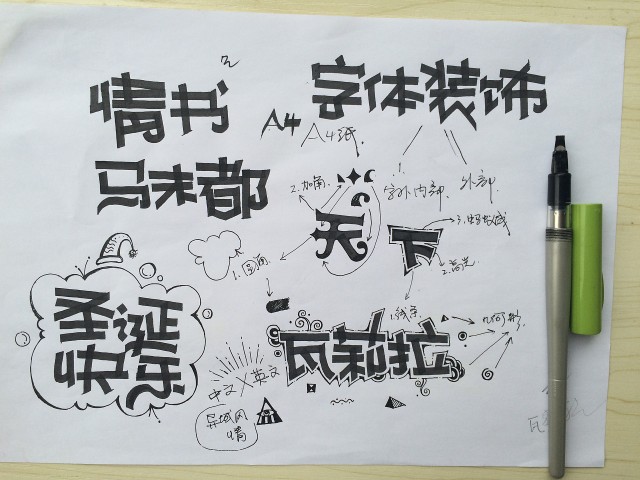 情书
字体装饰
A4
A4纸.
马未都
2.加角.
字外内部.
外部.
天
下
1.圆角.
2.高光.
圣诞
快乐
瓦莉拉
几何形.
中文×英文
异域风
情